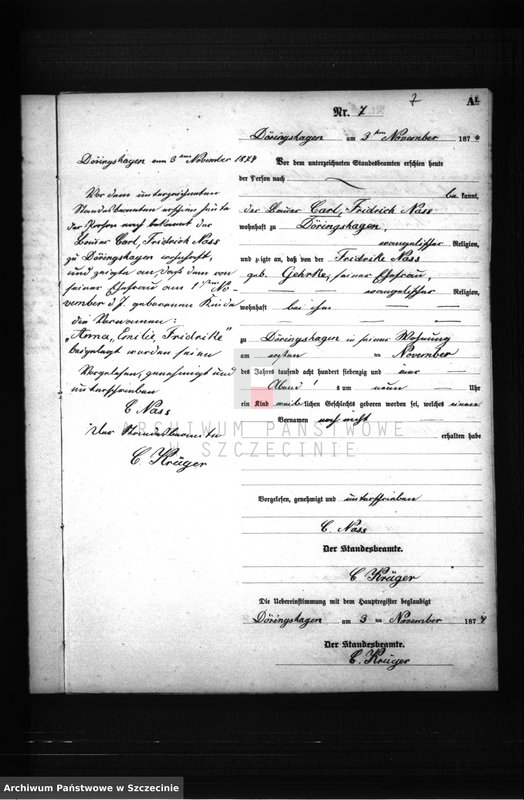 7
A¹
Nr. 7
Döringshagen am 3ten November 1874
Vor dem unterzeichneten Standesbeamten erschien heute
der Person nach
bekannt,
der Bauer Carl, Fridrich Nass
wohnhaft zu Döringshagen,
evangelischer Religion,
und zeigte an, daß von der Fridrike Nass
geb. Gehrke, seiner Ehefrau,
evangelischer Religion,
wohnhaft bei ihm
zu Döringshagen in seiner Wohnung
am ersten ten November
des Jahres tausend acht hundert siebenzig und vier
Abend s um neun Uhr
ein Kind weiblichen Geschlechts geboren worden sei, welches einen
Vornamen noch nicht
erhalten habe
Vorgelesen, genehmigt und unterschrieben
C. Nass
Der Standesbeamte.
C Krüger
Die Uebereinstimmung mit dem Hauptregister beglaubigt
Döringshagen am 3 ten November 1874
Der Standesbeamte.
C. Krüger
Döringshagen am 3ten November 1874
Vor dem unterzeichneten
Standesbeamten erschien heute
der Person nach bekannt der
Bauer Carl, Fridrich Nass
zu Döringshagen wohnhaft,
und zeigte an daß dem von
seiner Ehefrau am 1sten No-
vember d. J. geborenen Kinde
die Vornamen:
„Anna, Emilie, Fridrike"
beigelegt worden seien
Vorgelesen, genehmigt und
unterschrieben
C Nass
Der Standesbeamte
C. Krüger
ARCHIWUM PAŃSTWOWE
W SZCZECINIE
Archiwum Państwowe w Szczecinie